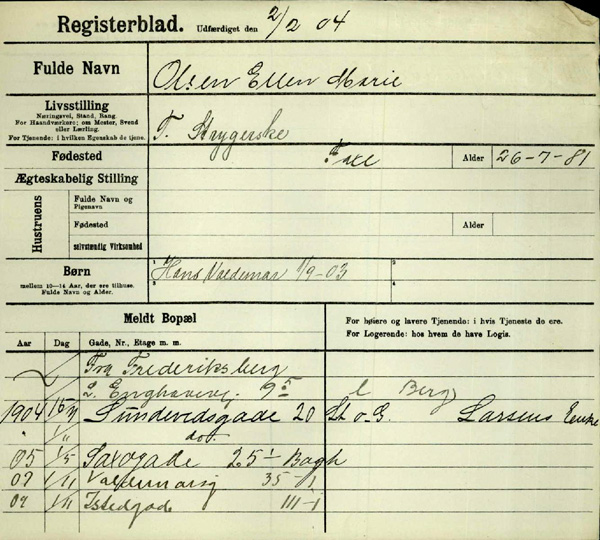 Registerblad. Udfærdiget den 2/2 04
Fulde Navn Olsen Ellen Marie
Livsstilling
Næringsvej, Stand, Rang.
For Haandværkere; om Mester, Svend
eller Lærling.
For Tjenende: i hvilken Egenskab de tjene.
F. Strygerske
Fødested Faxe Alder 26-7-81
Ægteskabelig Stilling
Hustruens
Fulde Navn og
Pigenavn
Fødested Alder
selvstændig Virksomhed
Børn
mellem 10–14 Aar, der ere tilhuse.
Fulde Navn og Alder.
1 Hans Valdemar 1/9-03 2
3 4
Meldt Bopæl
For høiere og lavere Tjenende: i hvis Tjeneste de ere.
For Logerende: hos hvem de have Logis.
Aar Dag Gade, Nr., Etage m. m.
Fra Frederiksberg
Enghavevj. 9 5 l Berg
1904 Sundevedsgade 20 St o G. Larsens Enke
" 1/11 do.
05 1/5 Saxogade 25-1 Bagh
07 1/11 Valdemarsg 35-1
07 1/11 Istedgade 111-1